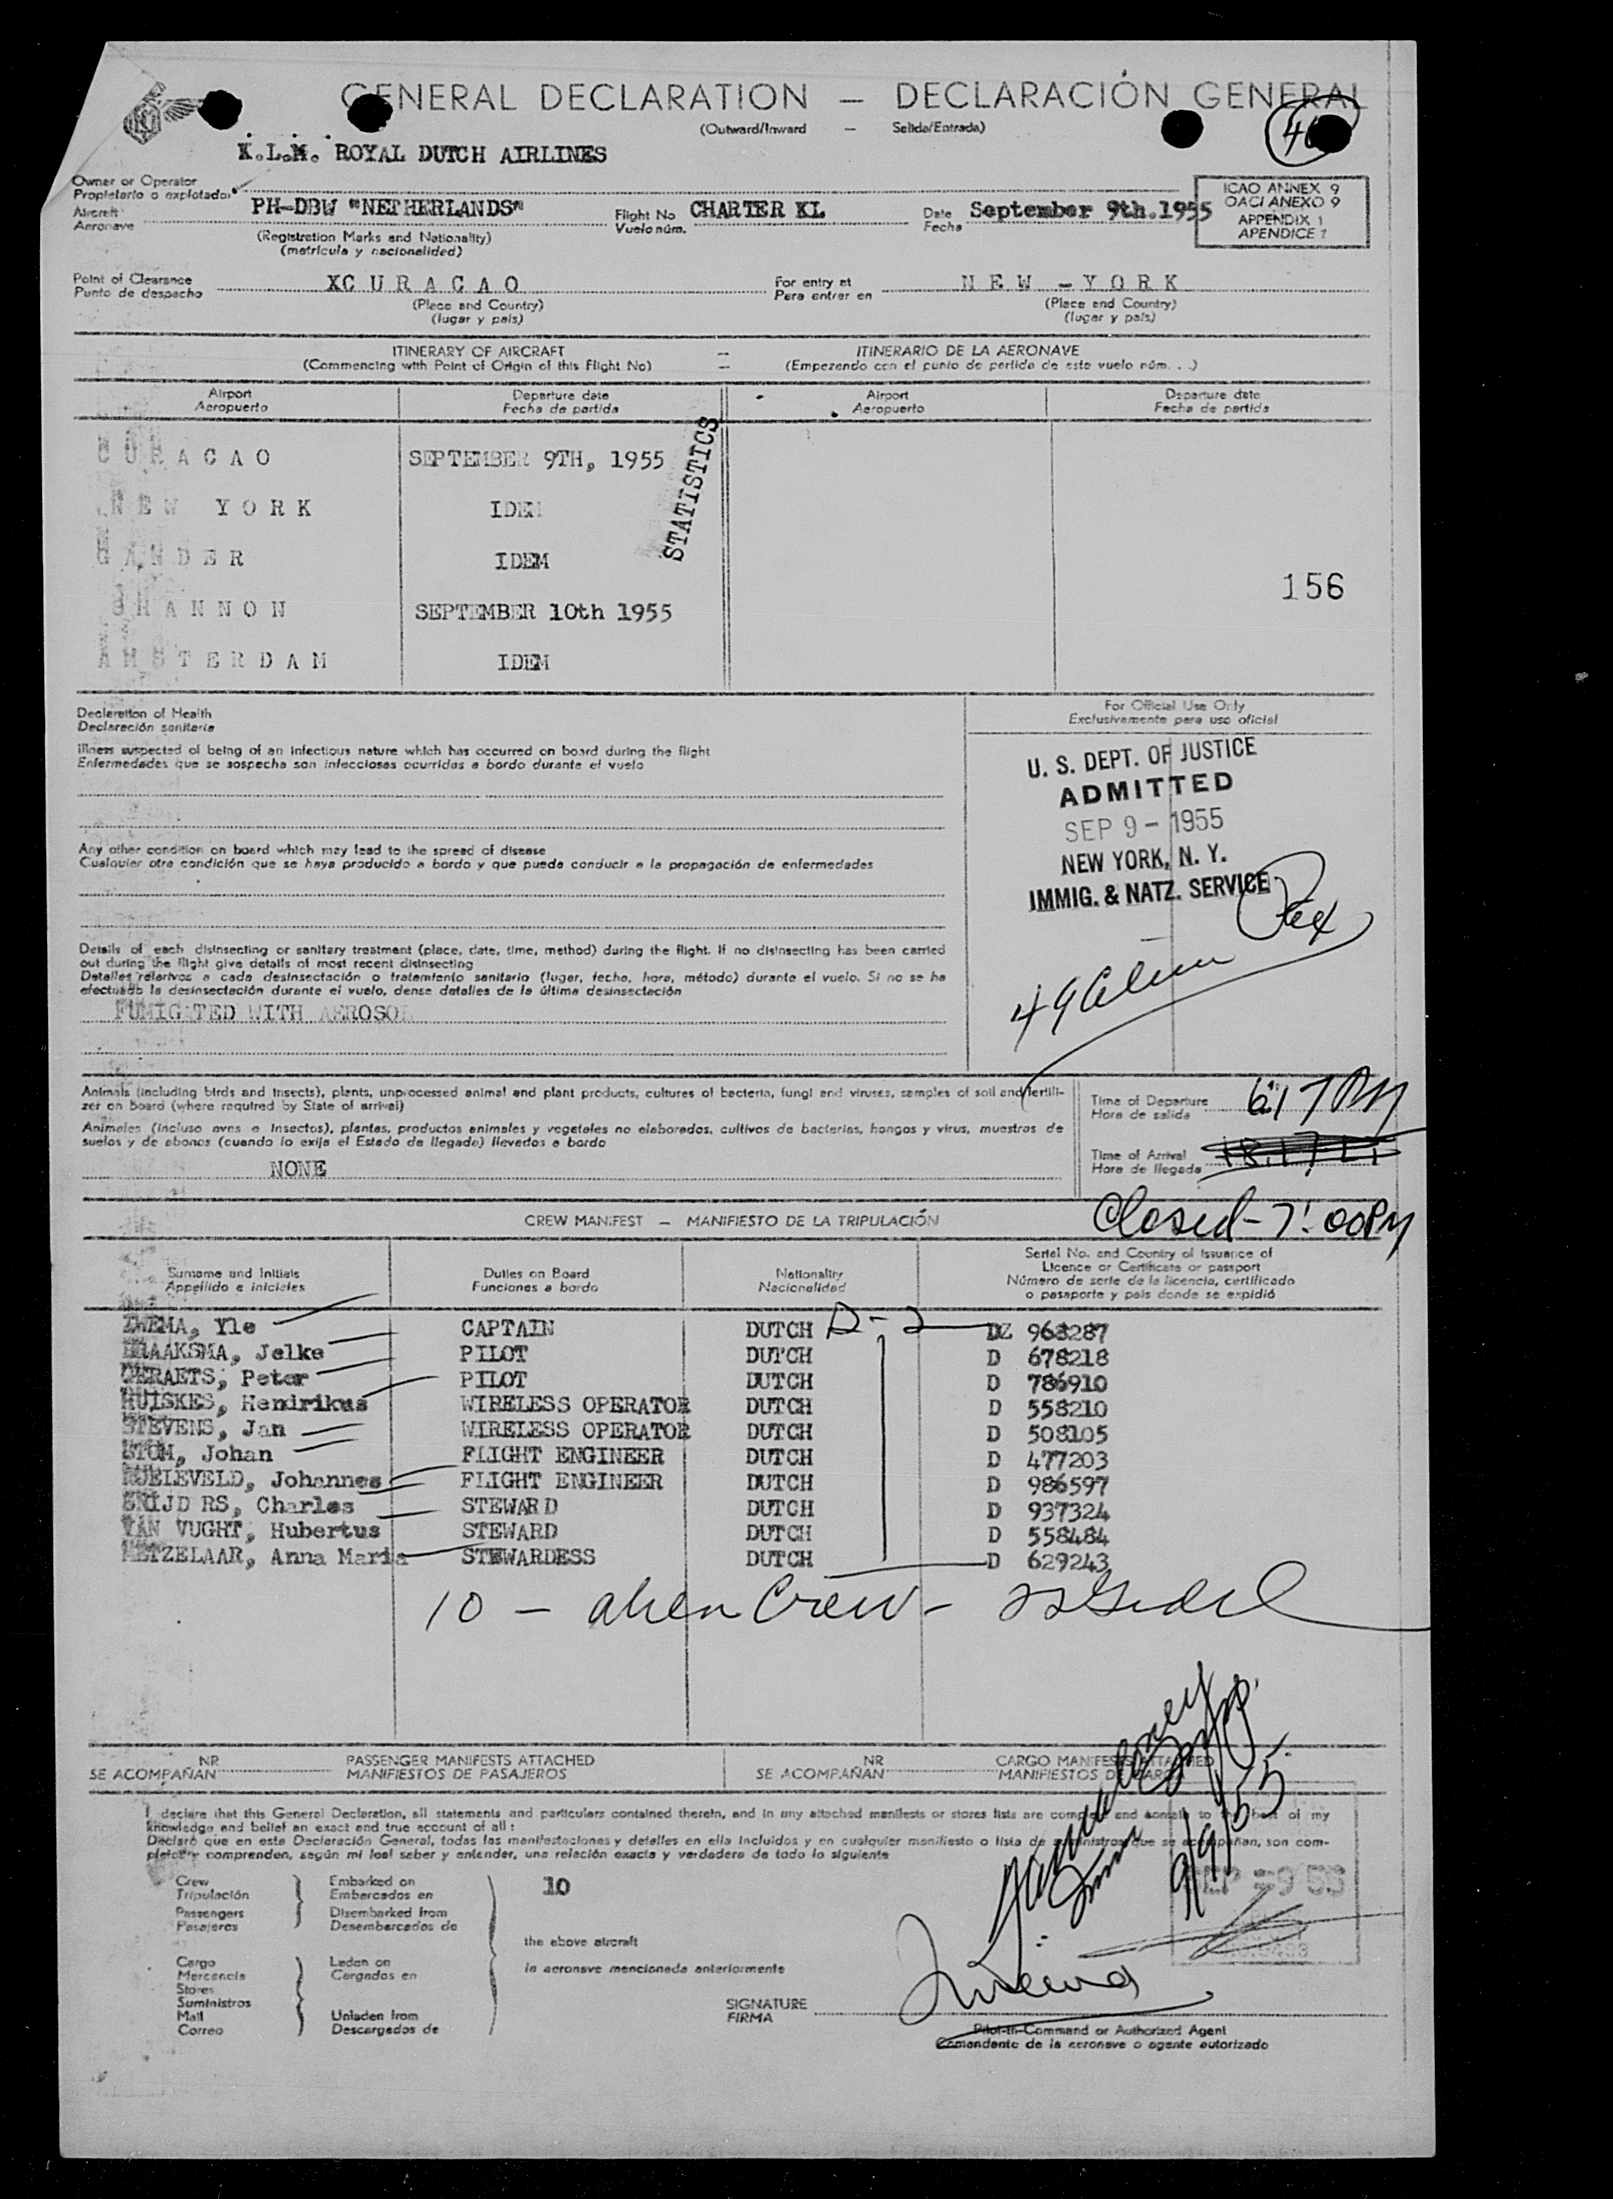 GENERAL DECLARATION — DECLARACIÓN GENERAL
(Outward/Inward — Salida/Entrada)
K.L.M. ROYAL DUTCH AIRLINES
Owner or Operator
Propietario o explotador
ICAO ANNEX 9
OACI ANEXO 9
APPENDIX 1
APENDICE 1
Aircraft PH-DBW "NETHERLANDS" Flight No CHARTER KL Date September 9th.1955
Aeronave Vuelo núm. Fecha
(Registration Marks and Nationality)
(matrícula y nacionalidad)
Point of Clearance XC U R A C A O For entry at N E W - Y O R K
Punto de despacho Para entrar en
(Place and Country) (Place and Country)
(lugar y país) (lugar y país)
ITINERARY OF AIRCRAFT — ITINERARIO DE LA AERONAVE
(Commencing with Point of Origin of this Flight No) — (Empezando con el punto de partida de este vuelo núm. . .)
Airport Departure date Airport Departure date
Aeropuerto Fecha de partida Aeropuerto Fecha de partida
C U R A C A O SEPTEMBER 9TH, 1955
STATISTICS
N E W Y O R K IDEM
G A N D E R IDEM
156
S H A N N O N SEPTEMBER 10th 1955
A M S T E R D A M IDEM
Declaration of Health
Declaración sanitaria
For Official Use Only
Exclusivamente para uso oficial
Illness suspected of being of an infectious nature which has occurred on board during the flight
Enfermedades que se sospecha son infecciosas ocurridas a bordo durante el vuelo
U. S. DEPT. OF JUSTICE
ADMITTED
SEP 9 - 1955
NEW YORK, N. Y.
IMMIG. & NATZ. SERVICE
Any other condition on board which may lead to the spread of disease
Cualquier otra condición que se haya producido a bordo y que pueda conducir a la propagación de enfermedades
Details of each disinsecting or sanitary treatment (place, date, time, method) during the flight. If no disinsecting has been carried
out during the flight give details of most recent disinsecting
Detalles relativos a cada desinsectación o tratamiento sanitario (lugar, fecha, hora, método) durante el vuelo. Si no se ha
efectuado la desinsectación durante el vuelo, dense detalles de la última desinsectación
FUMIGATED WITH AEROSOL
Animals (including birds and insects), plants, unprocessed animal and plant products, cultures of bacteria, fungi and viruses, samples of soil and fertili-
zer on board (where required by State of arrival)
Animales (incluso aves e insectos), plantas, productos animales y vegetales no elaborados, cultivos de bacterias, hongos y virus, muestras de
suelos y de abonos (cuando lo exija el Estado de llegada) llevados a bordo
NONE
Time of Departure 6:17 PM
Hora de salida
Time of Arrival
Hora de llegada
Closed - 7:00PM
CREW MANIFEST — MANIFIESTO DE LA TRIPULACIÓN
Surname and Initials Duties on Board Nationality Serial No. and Country of Issuance of
Apellido e iniciales Funciones a bordo Nacionalidad Licence or Certificate or passport
Número de serie de la licencia, certificado
o pasaporte y país donde se expidió
ZWEMA, Yle CAPTAIN DUTCH D-2 DZ 963287
BRAAKSMA, Jelke PILOT DUTCH D 678218
GERAETS, Peter PILOT DUTCH D 786910
HUISKES, Hendrikus WIRELESS OPERATOR DUTCH D 558210
STEVENS, Jan WIRELESS OPERATOR DUTCH D 508105
STOM, Johan FLIGHT ENGINEER DUTCH D 477203
ROELEVELD, Johannes FLIGHT ENGINEER DUTCH D 986597
SNIJD RS, Charles STEWARD DUTCH D 937324
VAN VUGHT, Hubertus STEWARD DUTCH D 558484
METZELAAR, Anna Maria STEWARDESS DUTCH D 629243
10 - alien Crew -
NR PASSENGER MANIFESTS ATTACHED NR CARGO MANIFESTS ATTACHED
SE ACOMPAÑAN MANIFIESTOS DE PASAJEROS SE ACOMPAÑAN MANIFIESTOS DE CARGA
I declare that this General Declaration, all statements and particulars contained therein, and in any attached manifests or stores lists are complete and contain to the best of my
knowledge and belief an exact and true account of all :
Declaro que en esta Declaración General, todas las manifestaciones y detalles en ella incluidos y en cualquier manifiesto o lista de suministros que se acompañan, son com-
pletos y comprenden, según mi leal saber y entender, una relación exacta y verdadera de todo lo siguiente
9/9/55
SEP -9 55
Crew Embarked on 10
Tripulación Embarcados en
Passengers Disembarked from
Pasajeros Desembarcados de
the above aircraft
Cargo Laden on
Mercancía Cargados en
la aeronave mencionada anteriormente
Stores
Suministros
Mail Unladen from
Correo Descargados de
SIGNATURE
FIRMA
Pilot-in-Command or Authorized Agent
Comandante de la aeronave o agente autorizado